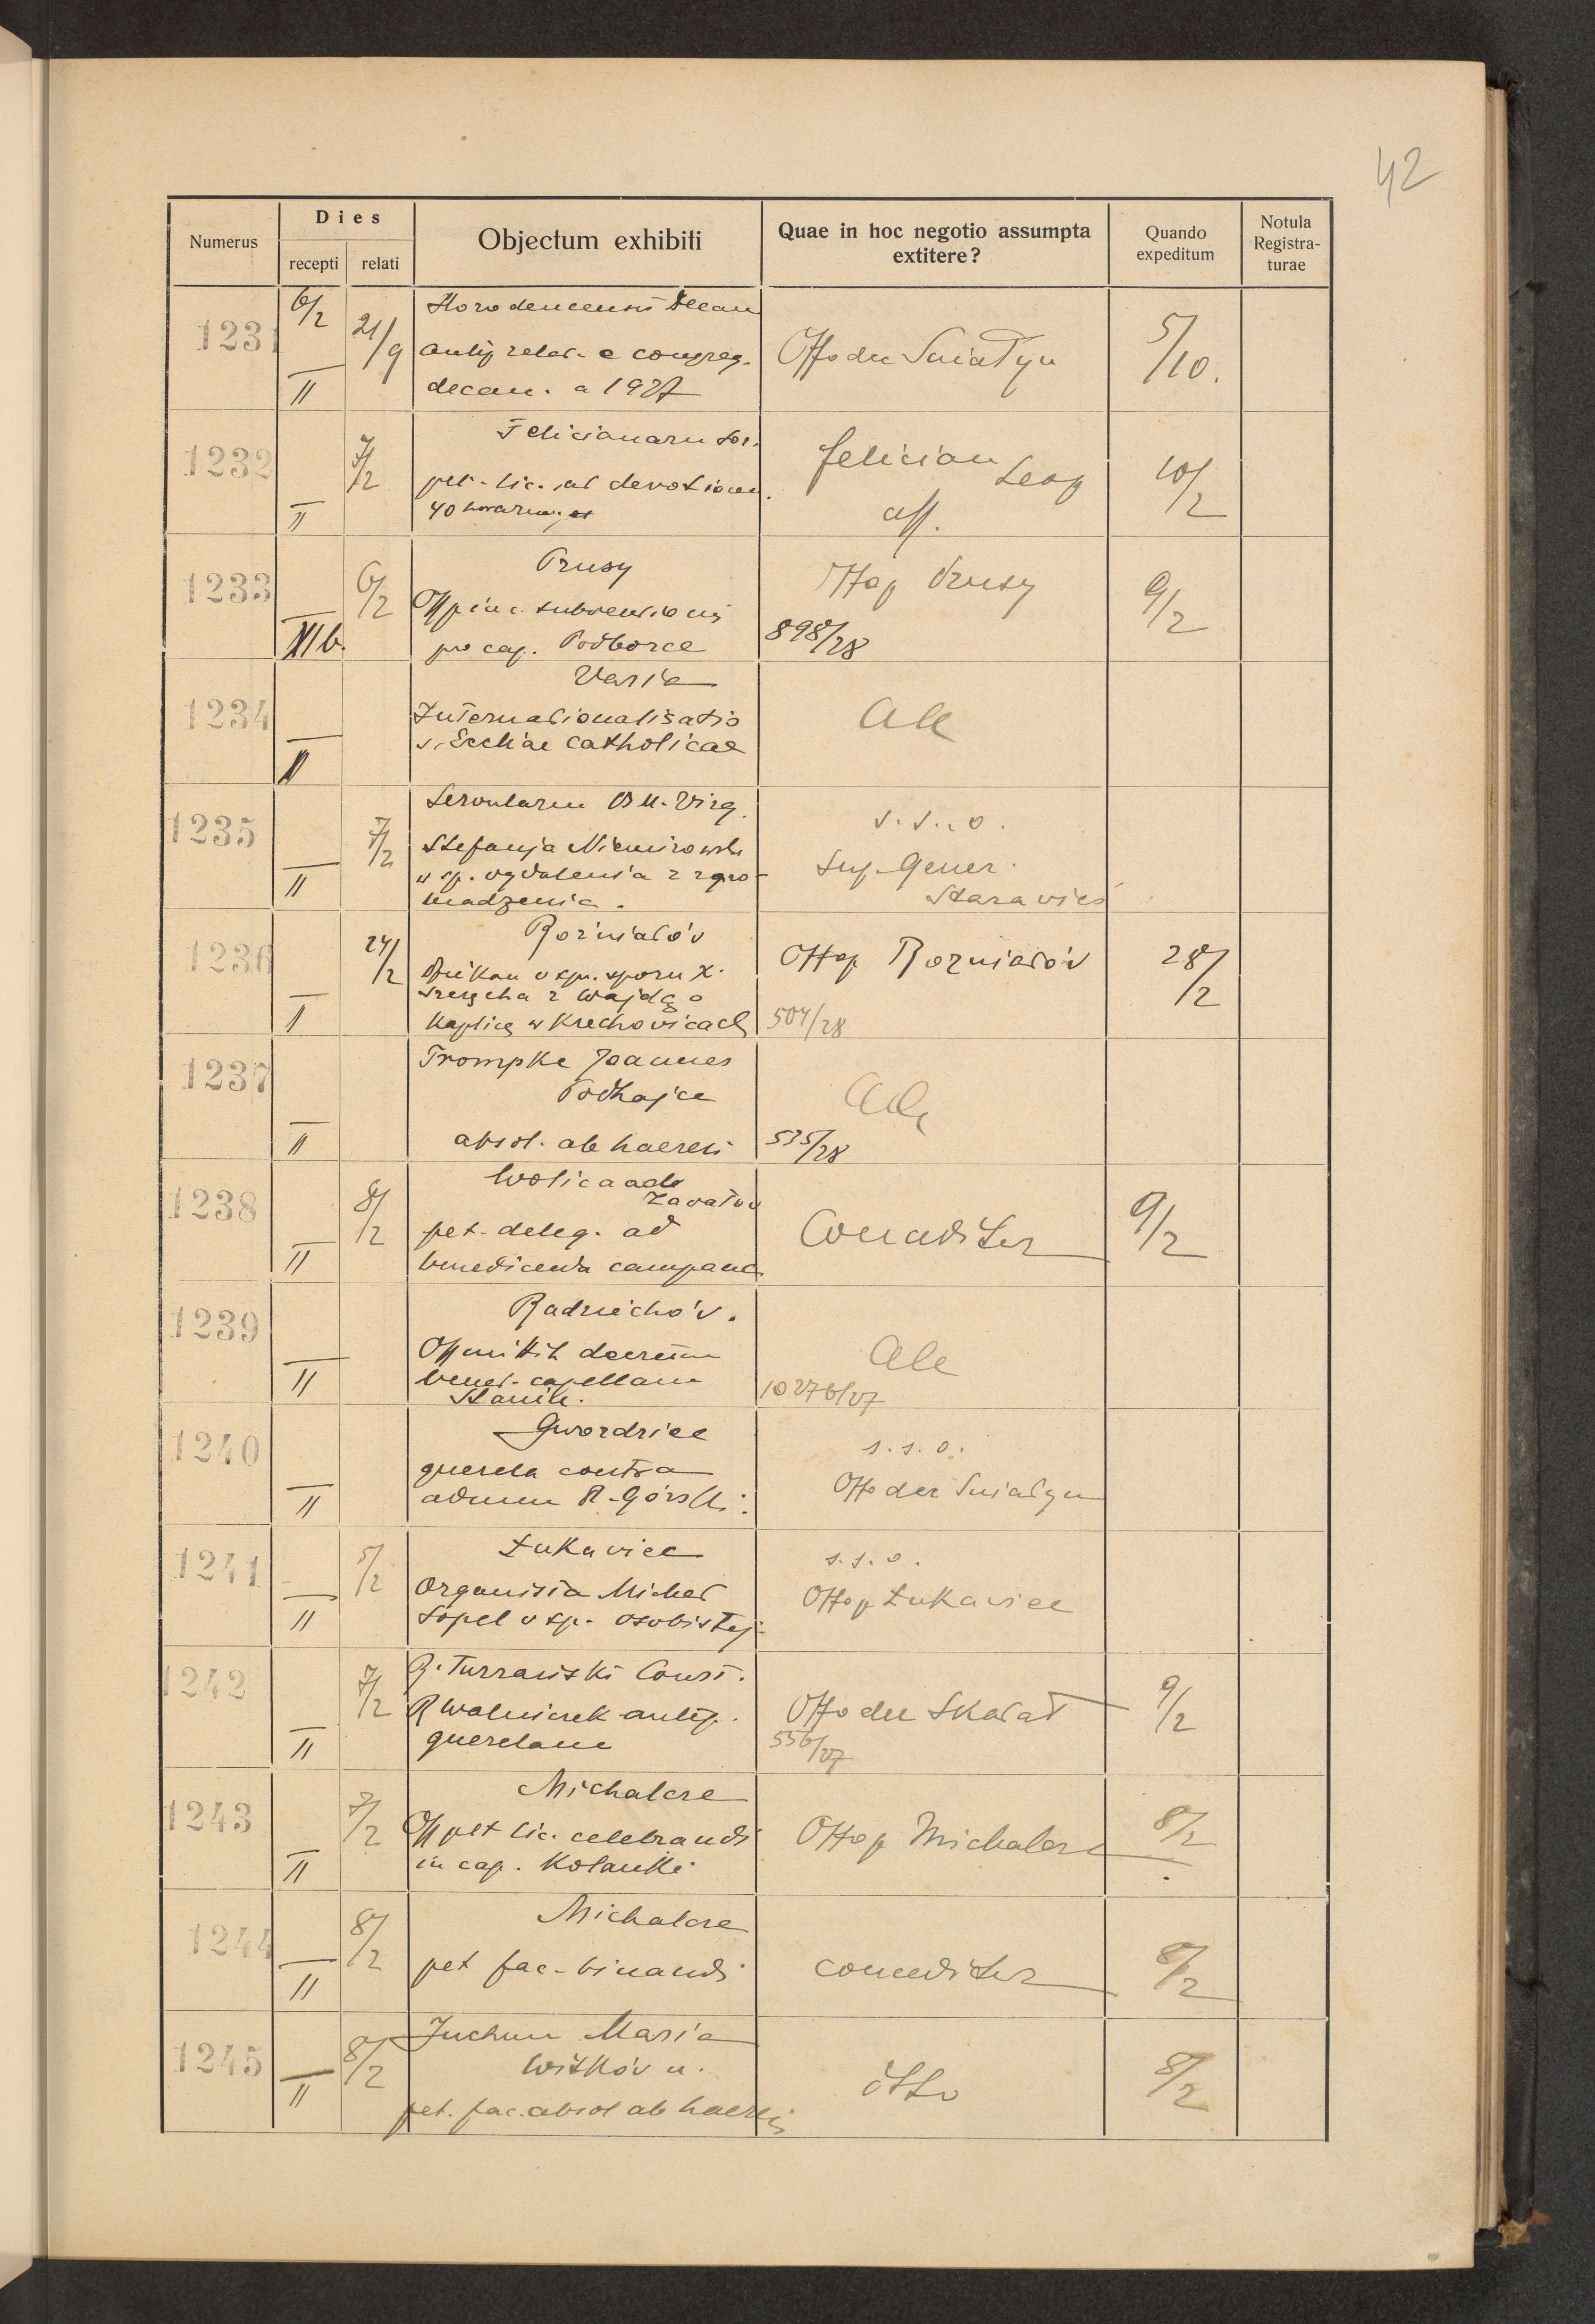 42
Numerus
Dies
recepti
relati
Objectum exhibiti
Quae in hoc negotio assumpta
extitere?
Quando
expeditum
Notula
Registra-
turae
1231
6/2
II
21/9
Horodencensis Decan
relat. e congreg.
decan. a 1927
Offo dec Sniatyn
5/10.
1232
II
7/2
Felicianarum Sor.
pet. lic. ad devotionem
40 horarum
Felician Leop
aff.
10/2
1233
XIb.
6/2
Prusy
Off p in c. subventionis
pro cap. Podborce
Offop Prusy
898/28
9/2
1234
II
Varia
Internationalisatio
s. Eccliae catholicae
1235
II
7/2
Servularum B M. Virg.
Stefanja Niemirowska
w sp. wydalenia z zgro-
madzenia.
s.s.o.
Sup. Gener.
Starawieś
1236
II
24/2
Rożniatów
w sp. sporu X.
z Wajdą o
kaplicę w Krechowicach
Offop Rozniatów
504/28
28/2
1237
II
Trompke Joannes
Podhajce
absol. ab haeresi
535/28
1238
II
8/2
Wolica ad
Zawałow
pet. deleg. ad
benedicenda campana
Conceditur
9/2
1239
II
Radziechów.
Off mittit decretum
bened. capellam
Stanih.
10276/27
1240
II
Gwozdziec
querela contra
admin R. Górski.
s.s.o.
Offo dec Sniatyn
1241
II
5/2
Łukawiec
Organista Michał
Sopel w sp. osobistej.
s.s.o.
Offop Łukawiec
1242
II
7/2
R. Turzański Const.
R Wolniczek antep.
querelam
Offo dec Skałat
556/27
9/2
1243
II
7/2
Michalcze
Off pet lic. celebrandi
in cap. Kolanki
Offop Michalcze
8/2
1244
II
8/2
Michalcze
pet fac. binandi
conceditur
8/2
1245
II
8/2
Juchum Maria
Witków n.
pet. fac. absol ab haeresi
8/2